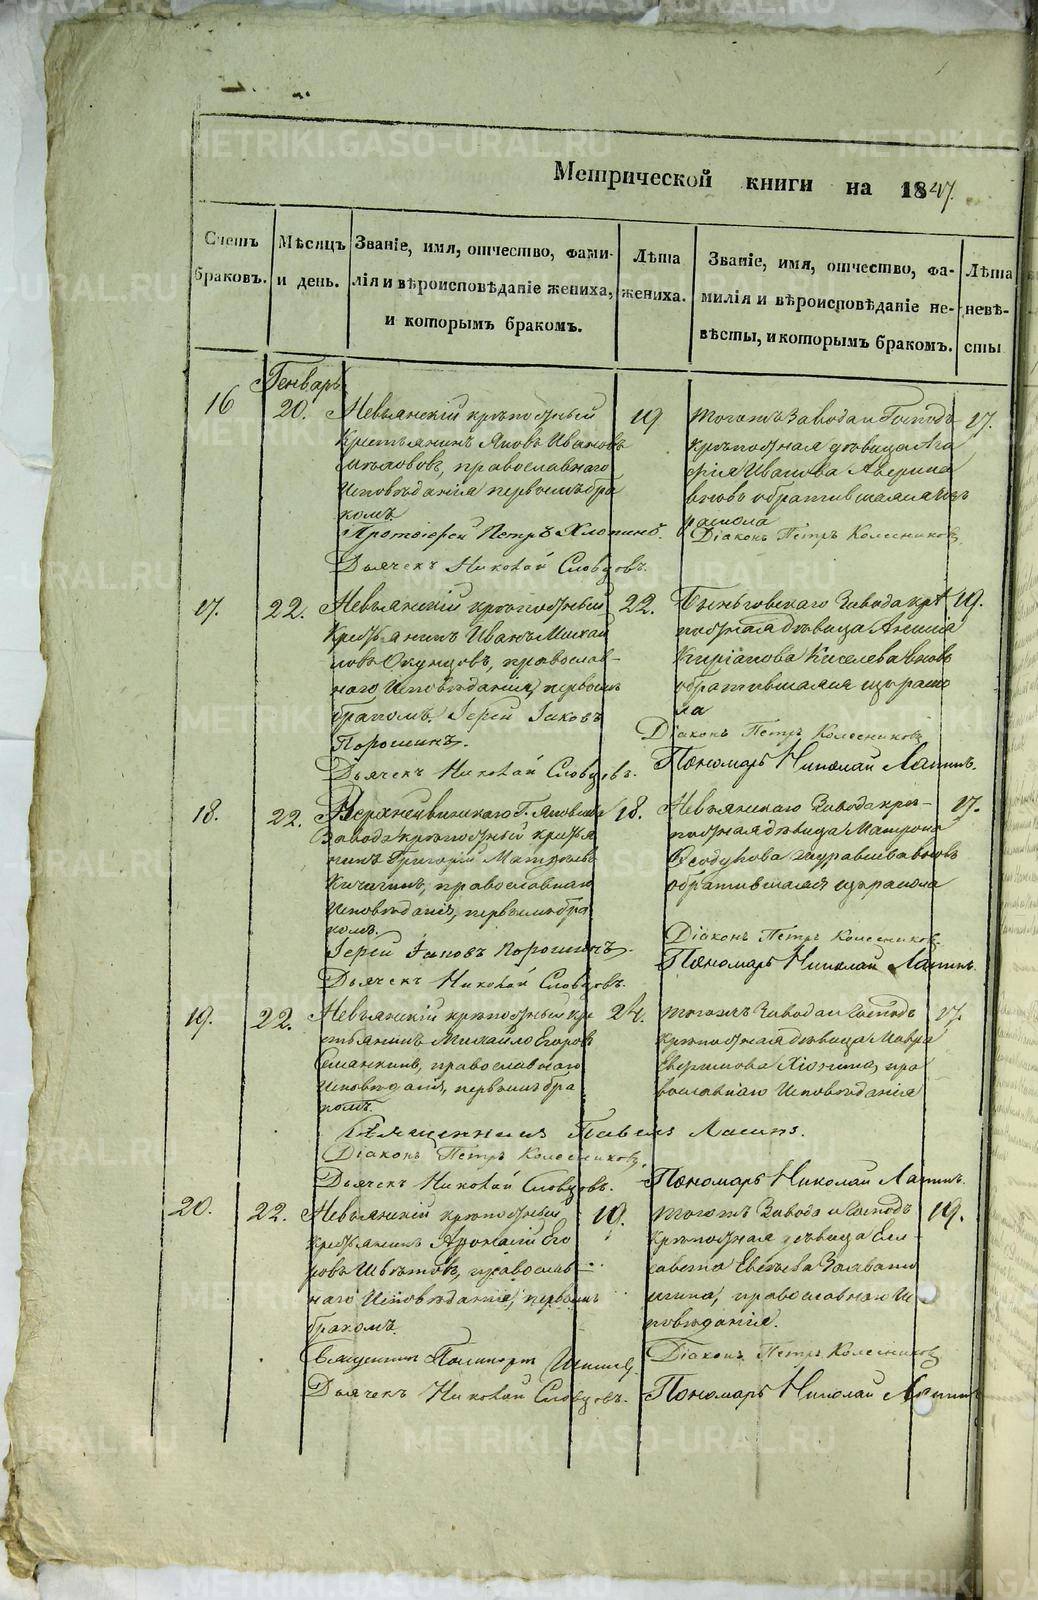 Метрической книги на 1847.
Счетъ браковъ.
Мѣсяцъ и день.
Званіе, имя, отчество, фами-
лія и вѣроисповѣданіе жениха,
и которымъ бракомъ.
Лѣта
жениха.
Званіе, имя, отчество, фа-
милія и вѣроисповѣданіе не-
вѣсты, и которымъ бракомъ.
Лѣта
невѣ-
сты
Генварь
16
20.
Невьянскій крѣпостный
крестьянинъ Яковъ Ивановъ
православнаго
исповѣданія первымъ бра
комъ.
Протоіерей Петръ Хлопинъ.
Дьячекъ Николай Словцовъ.
19
Тогожъ Завода и Господъ
крѣпостная дѣвица Ага
фія Иванова Аверина
вновь обратившаяся изъ
раскола
Діаконъ Петръ Колесниковъ.
17.
17.
22.
Невьянскій крѣпостный
крестьянинъ Иванъ Михай
ловъ Окунцовъ, православ-
наго исповѣданія, первымъ
бракомъ. Іерей Іаковъ
Порошинъ.
Дьячекъ Николай Словцовъ.
22.
Быньговскаго Завода крѣ
постная дѣвица Анисія
Киріанова Киселева вновь
обратившаяся изъ раско
ла
Діаконъ Петръ Колесниковъ
Пономарь Николай Лапинъ.
19.
18.
22.
Верхнейвинскаго Г. Яковлева
Завода крѣпостный крестья
нинъ Григорій Матвѣевъ
Кичигинъ, православнаго
исповѣданія, первымъ бра
комъ.
Іерей Іаковъ Порошинъ.
Дьячекъ Николай Словцовъ.
18.
Невьянскаго Завода крѣ-
постная дѣвица Матрона
Феодулова Журавлева вновь
обратившаяся изъ раскола
Діаконъ Петръ Колесниковъ.
Пономарь Николай Лапинъ.
17.
19.
22.
Невьянскій крѣпостный кре
стьянинъ Михайло Егоровъ
Семянкинъ, православнаго
исповѣданія, первымъ бра
комъ.
24.
Тогожъ Завода и Господъ
крѣпостная дѣвица Мавра
Хіонина, пра
вославнаго исповѣданія
17.
Священникъ Павелъ
Діаконъ Петръ Колесниковъ.
Дьячекъ Николай Словцовъ.
Пономарь Николай Лапинъ.
20.
22.
Невьянскій крѣпостный
крестьянинъ Афонасій Его
ровъ Швѣтовъ, православ-
наго исповѣданія, первымъ
бракомъ.
Священникъ
Дьячекъ Николай Словцовъ.
19.
Тогожъ Завода и Господъ
крѣпостная дѣвица Ели-
савета
православнаго ис
повѣданія.
Діаконъ Петръ Колесниковъ
Пономарь Николай Лапинъ
19.
METRIKI.GASO-URAL.RU